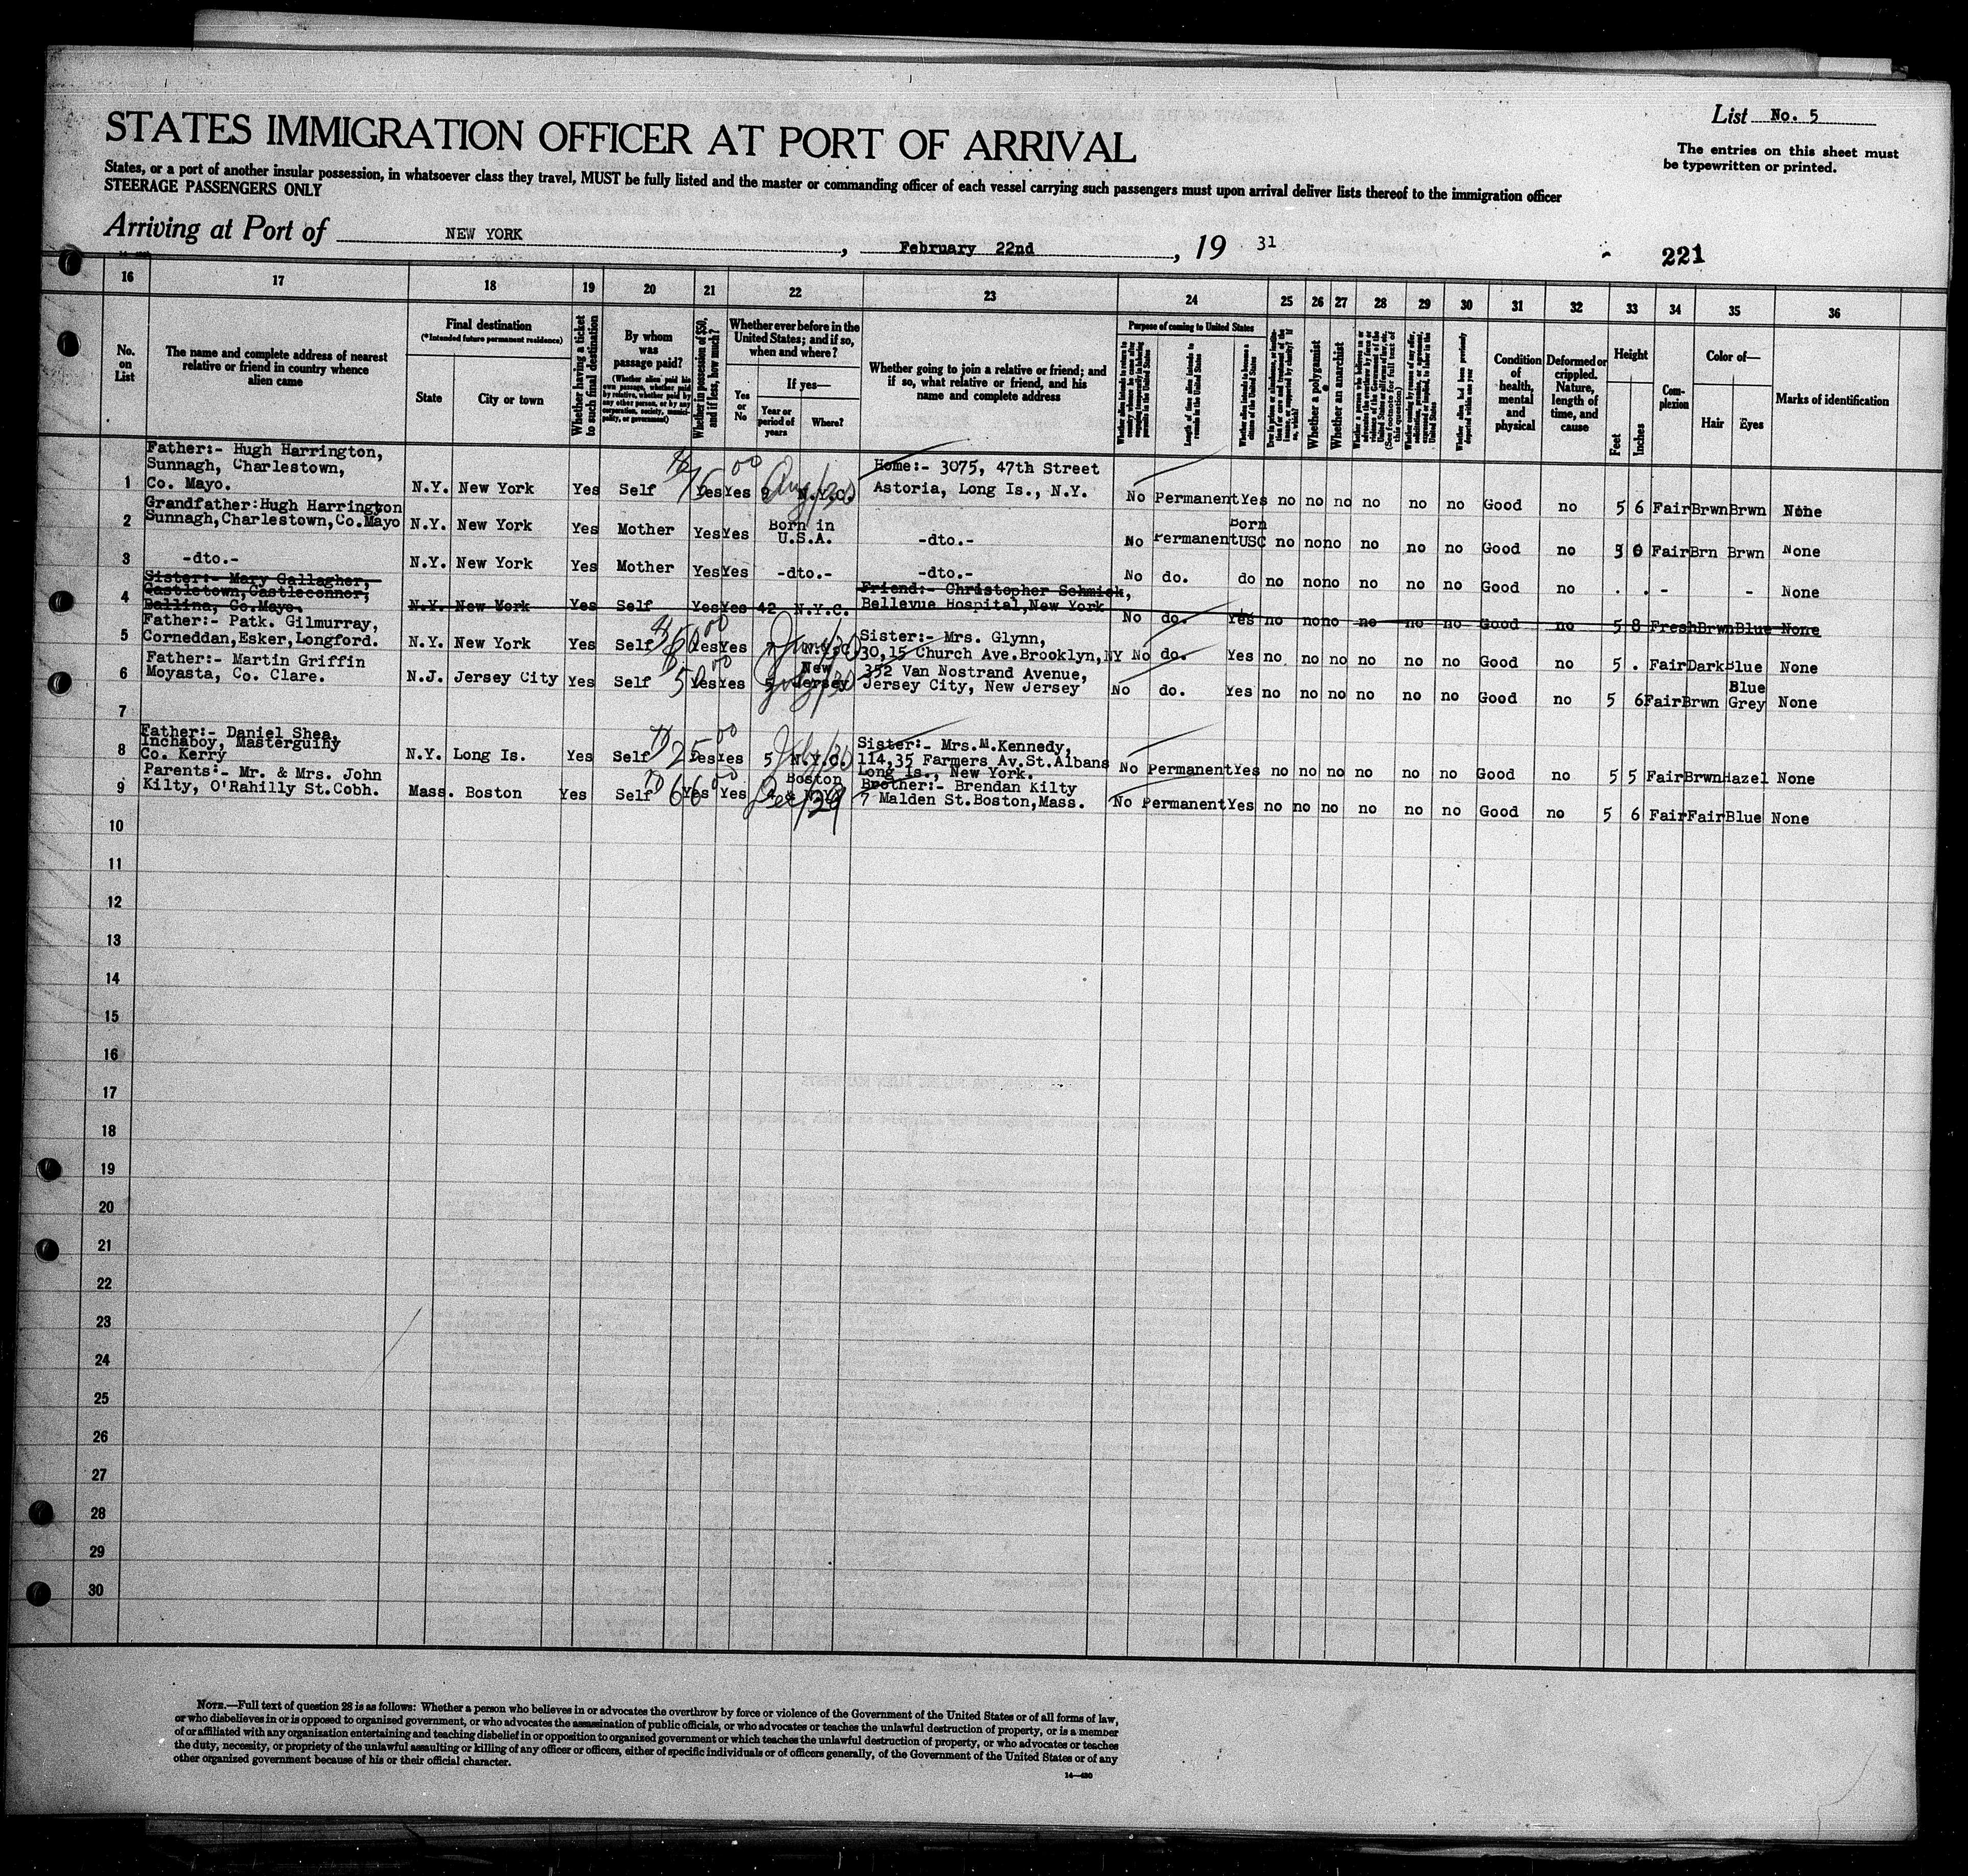 List No. 5
STATES IMMIGRATION OFFICER AT PORT OF ARRIVAL
The entries on this sheet must
be typewritten or printed.
States, or a port of another insular possession, in whatsoever class they travel, MUST be fully listed and the master or commanding officer of each vessel carrying such passengers must upon arrival deliver lists thereof to the immigration officer
STEERAGE PASSENGERS ONLY
Arriving at Port of NEW YORK , February 22nd , 19 31
221
16 17 18 19 20 21 22 23 24 25 26 27 28 29 30 31 32 33 34 35 36
No. on List
The name and complete address of nearest
relative or friend in country whence
alien came
Final destination
(*Intended future permanent residence)
State City or town
Whether having a ticket
to such final destination
By whom
was
passage paid?
(Whether alien paid his
own passage, whether paid
by relative, whether paid by
any other person, or by any
corporation, society, munici-
pality, or government)
Whether in possession of $50,
and if less, how much?
Whether ever before in the
United States; and if so,
when and where?
Yes or No
If yes—
Year or period of years
Where?
Whether going to join a relative or friend; and
if so, what relative or friend, and his
name and complete address
Purpose of coming to United States
Length of time alien intends to
remain in the United States
Whether alien intends to become a
citizen of the United States
Whether a polygamist
Whether an anarchist
Whether alien had been previously
deported within one year
Condition of health, mental and physical
Deformed or crippled. Nature, length of time, and cause
Height
Feet Inches
Com-
plexion
Color of—
Hair Eyes
Marks of identification
Father:- Hugh Harrington,
Sunnagh, Charlestown,
1 Co. Mayo. N.Y. New York Yes Self 75 00 Yes Yes Aug/30 N.Y.C. Home:- 3075, 47th Street
Astoria, Long Is., N.Y. No Permanent Yes no no no no no no Good no 5 6 Fair Brwn Brwn None
Grandfather:Hugh Harrington
2 Sunnagh,Charlestown,Co.Mayo N.Y. New York Yes Mother Yes Yes Born in U.S.A. -dto.- No Permanent Born USC no no no no no no Good no 3 0 Fair Brn Brwn None
3 -dto.- N.Y. New York Yes Mother Yes Yes -dto.- -dto.- No do. do no no no no no no Good no . . - - None
Sister:- Mary Gallagher,
Castletown,Castleconnor,
4 Ballina, Co.Mayo. N.Y. New York Yes Self Yes Yes 42 N.Y.C. Friend:- Christopher Schmick,
Bellevue Hospital,New York No do. Yes no no no no no no Good no 5 8 Fresh Brwn Blue None
Father:- Patk. Gilmurray,
5 Corneddan,Esker,Longford. N.Y. New York Yes Self Yes Yes N.Y.C. Sister:- Mrs. Glynn,
30,15 Church Ave.Brooklyn,NY No do. Yes no no no no no no Good no 5 . Fair Dark Blue None
Father:- Martin Griffin
6 Moyasta, Co. Clare. N.J. Jersey City Yes Self 50 00 Yes Yes 5 New Jersey July/30 352 Van Nostrand Avenue,
Jersey City, New Jersey No do. Yes no no no no no no Good no 5 6 Fair Brwn Blue Grey None
7
Father:- Daniel Shea,
Inchaboy, Masterguihy
8 Co. Kerry N.Y. Long Is. Yes Self 25 00 Yes Yes 5 N.Y.C. July/30 Sister:- Mrs.M.Kennedy,
114,35 Farmers Av.St.Albans
Long Is., New York. No Permanent Yes no no no no no no Good no 5 5 Fair Brwn Hazel None
Parents:- Mr. & Mrs. John
9 Kilty, O'Rahilly St.Cobh. Mass. Boston Yes Self 66 00 Yes Yes Boston & N.Y.C. Dec/29 Brother:- Brendan Kilty
7 Malden St.Boston,Mass. No Permanent Yes no no no no no no Good no 5 6 Fair Fair Blue None
10
11
12
13
14
15
16
17
18
19
20
21
22
23
24
25
26
27
28
29
30
NOTE.—Full text of question 28 is as follows: Whether a person who believes in or advocates the overthrow by force or violence of the Government of the United States or of all forms of law,
or who disbelieves in or is opposed to organized government, or who advocates the assassination of public officials, or who advocates or teaches the unlawful destruction of property, or is a member
of or affiliated with any organization entertaining and teaching disbelief in or opposition to organized government or which teaches the unlawful destruction of property, or who advocates or teaches
the duty, necessity, or propriety of the unlawful assaulting or killing of any officer or officers, either of specific individuals or of officers generally, of the Government of the United States or of any
other organized government because of his or their official character.
14—430